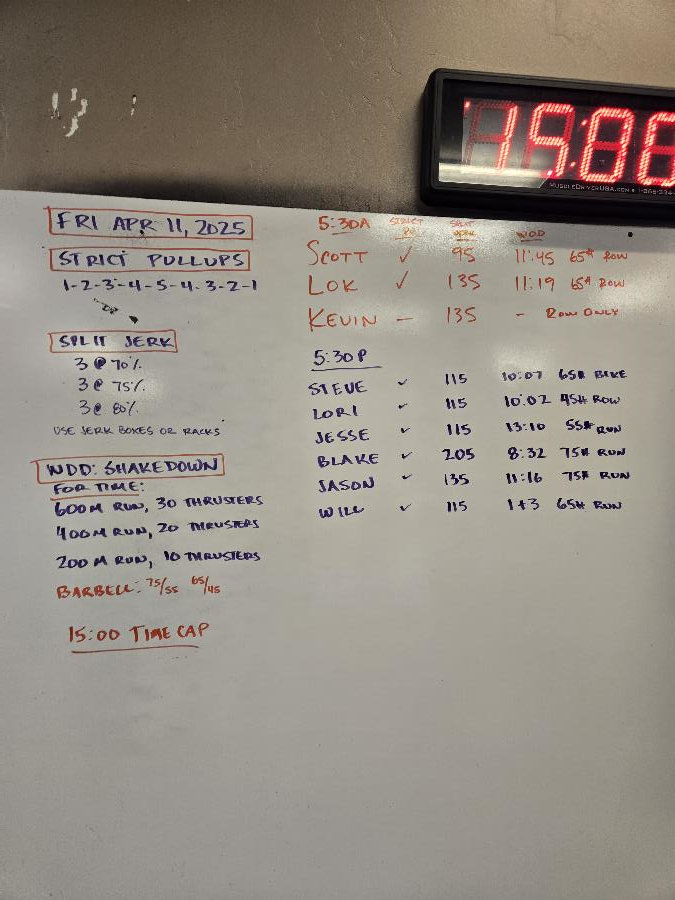 15:00
MUSCLEDRIVERUSA.COM
FRI APR 11, 2025
STRICT PULLUPS
1-2-3-4-5-4-3-2-1
SPLIT JERK
3 @ 70%
3 @ 75%
3 @ 80%
USE JERK BOXES OR RACKS
WOD: SHAKEDOWN
FOR TIME:
600M RUN, 30 THRUSTERS
400M RUN, 20 THRUSTERS
200 M RUN, 10 THRUSTERS
BARBELL: 75/55 65/45
15:00 TIME CAP
5:30A STRICT PU SPLIT JERK WOD
SCOTT ✓ 95 11:45 65# ROW
LOK ✓ 135 11:19 65# ROW
KEVIN — 135 - ROW ONLY
5:30P
STEVE ✓ 115 10:07 65# BIKE
LORI ✓ 115 10:02 45# ROW
JESSE ✓ 115 13:10 55# RUN
BLAKE ✓ 205 8:32 75# RUN
JASON ✓ 135 11:16 75# RUN
WILL ✓ 115 1+3 65# RUN